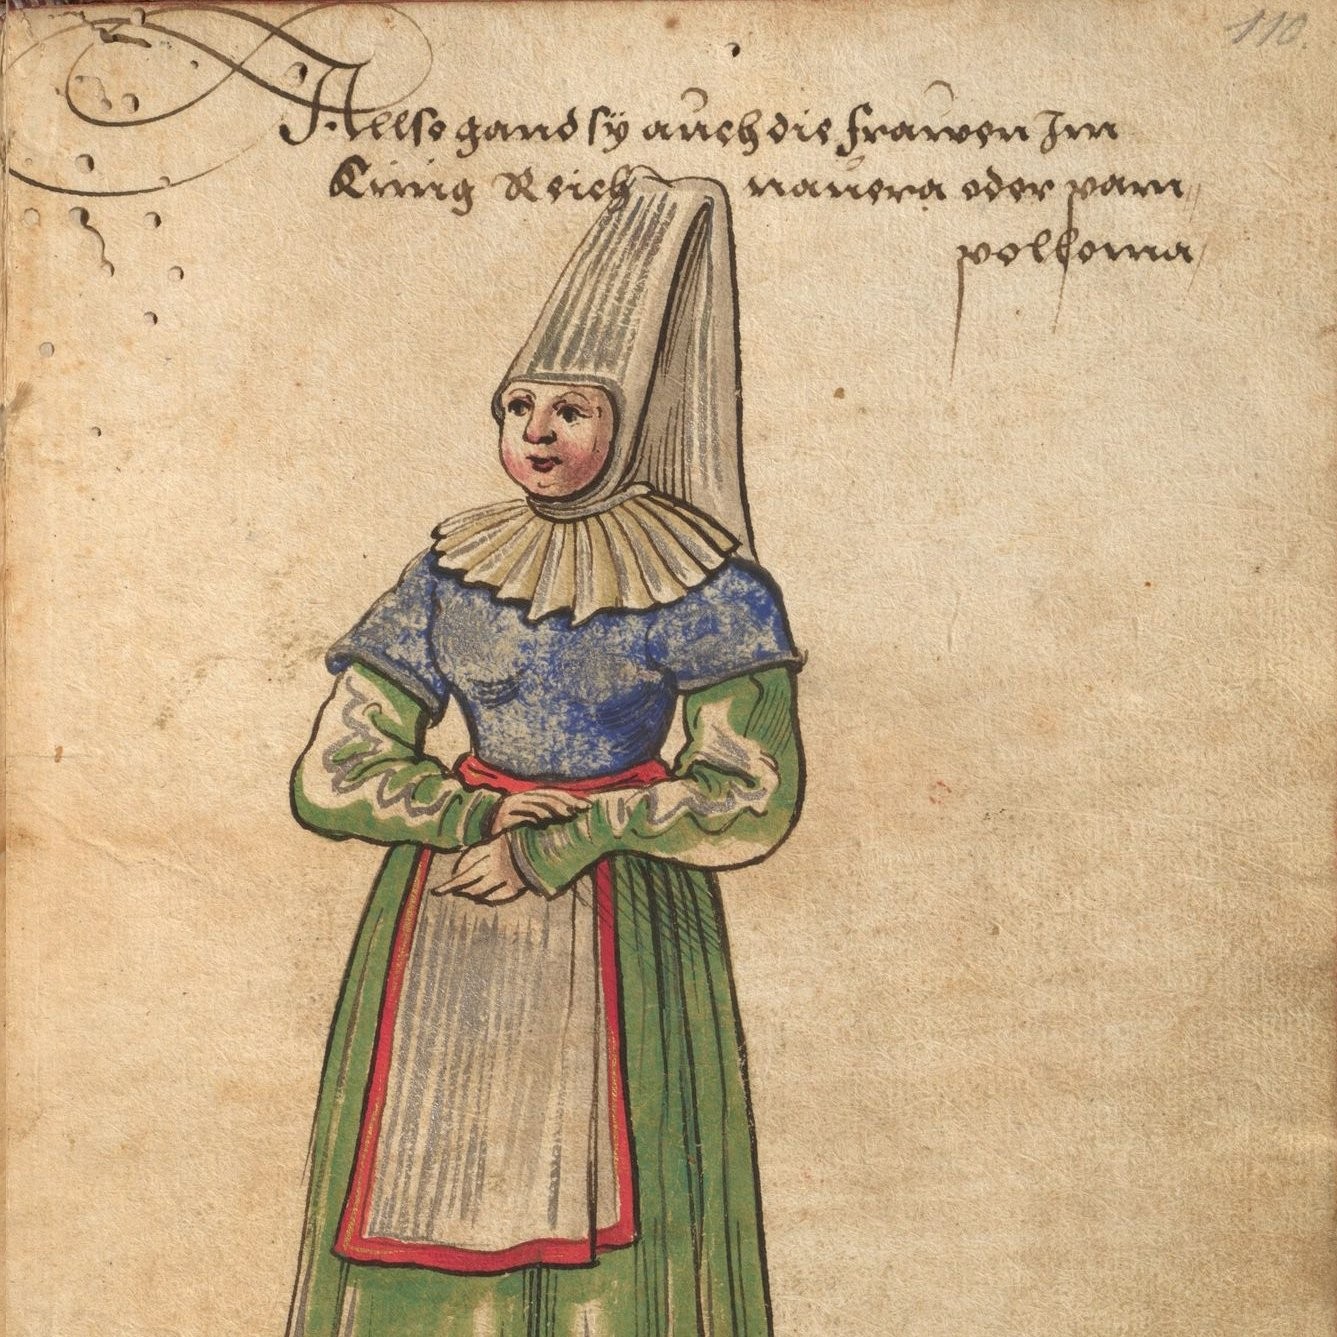 110.
Allso gand sÿ auch die frawen Im
Kunig Reich nauera oder pam
polhoma